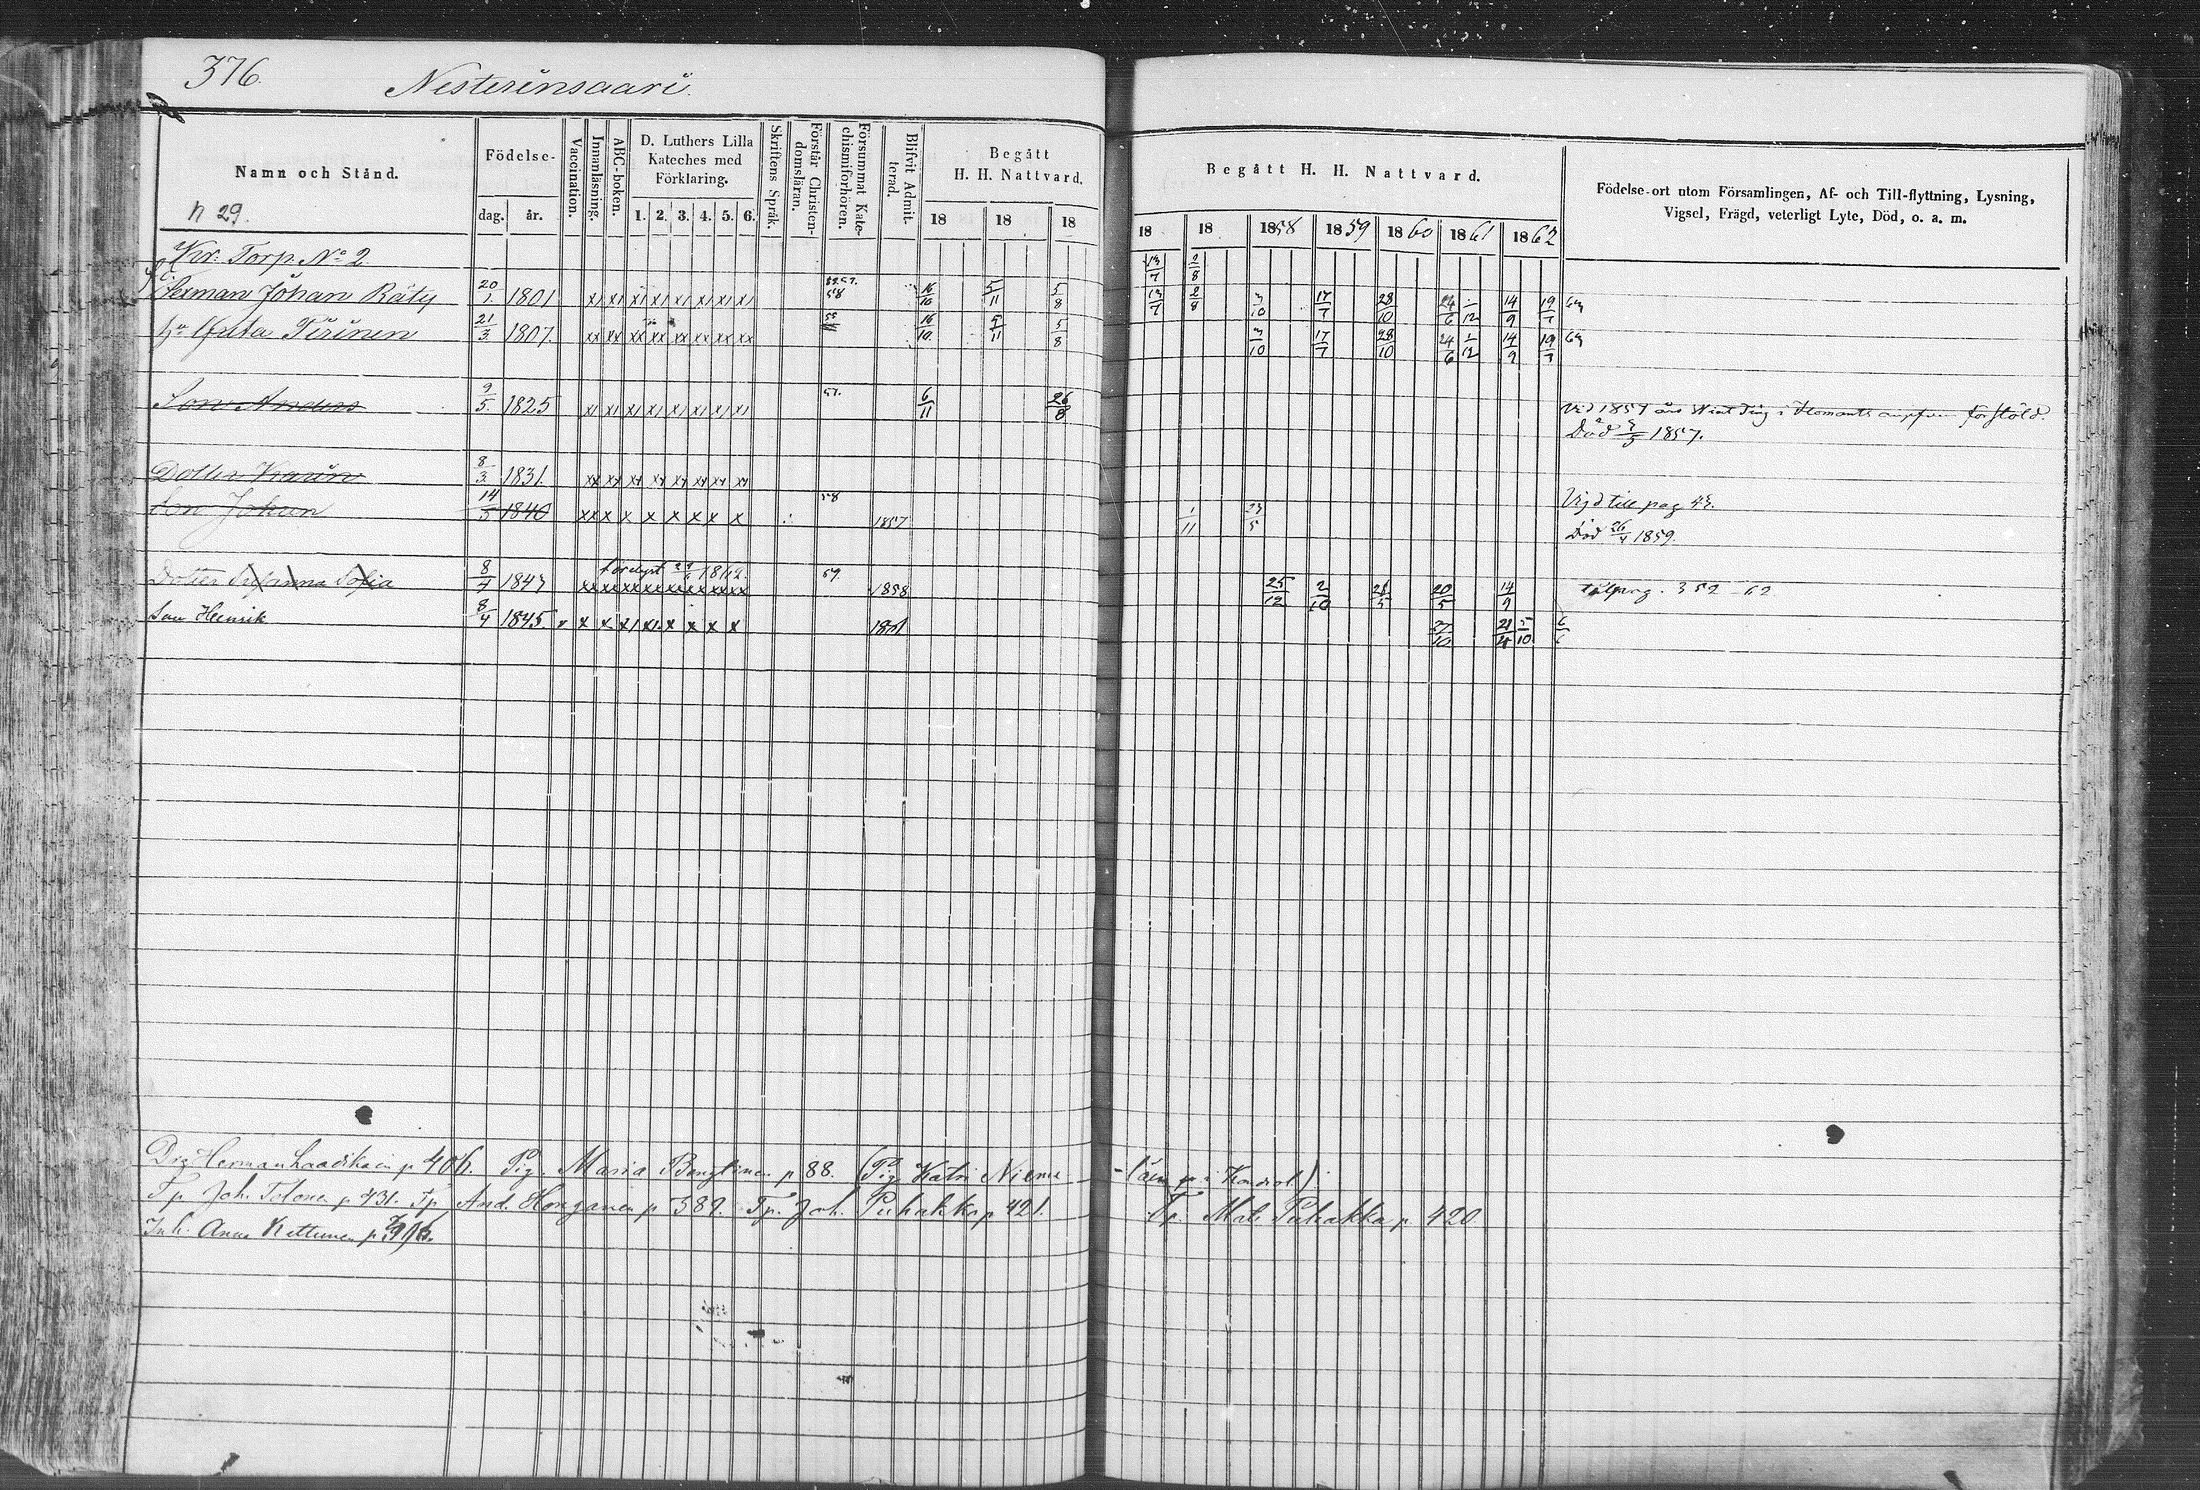 376.
Nesterinsaari.
Namn och Stånd.
n 29.
Födelse-
dag. år.
Vaccination.
Innanläsning.
ABC-boken.
D. Luthers Lilla
Kateches med
Förklaring.
1. 2. 3. 4. 5. 6.
Skriftens Språk.
Förstår Christen-
domsläran.
Försummat Kate-
chismiförhören.
Blifvit Admit-
terad.
Begått
H. H. Nattvard.
18 18 18
Begått H. H. Nattvard.
18 18 1858 1859 1860 1861 1862
Födelse-ort utom Församlingen, Af- och Till-flyttning, Lysning,
Vigsel, Frägd, veterligt Lyte, Död, o. a. m.
Kr: Torp No 2
13/7 2/8
Herman Johan Räty 20/1 1801 58 16/10 5/11 5/8 13/7 2/8 3/10 17/7 28/10 24/6 1/12 14/9 19/7 63
hu Tirinen 21/3 1807. 16/10 5/11 5/8 3/10 17/7 28/10 24/6 1/12 14/9 19/7 63
Son Anders 9/5 1825 57. 6/11 26/8 Vid 1857 års
Död 1857.
Dotter Karin 8/3 1831.
Son Johan 14/5 1840 58 1857 1/11 23/5 Vigd till pag 43.
Död 26/4 1859.
Dotter Susanna Sofia 8/4 1843 59. 1858 25/12 2/10 28/5 20/5 14/9 till pag. 352 - 62
Son Henrik 8/4 1845 1861 27/10 5/10 6/6
Drg Herman p 406. Pig. Maria p 88. (Pig Katri Niema -läin p i Kondrol)
Tp Joh. Tolonen p 431. Tp. And. Honganen p 389. Tp. Joh. Puhakka p 421. Tp. Mat. Puhakka p. 420
Inh. Anna Kettunen p